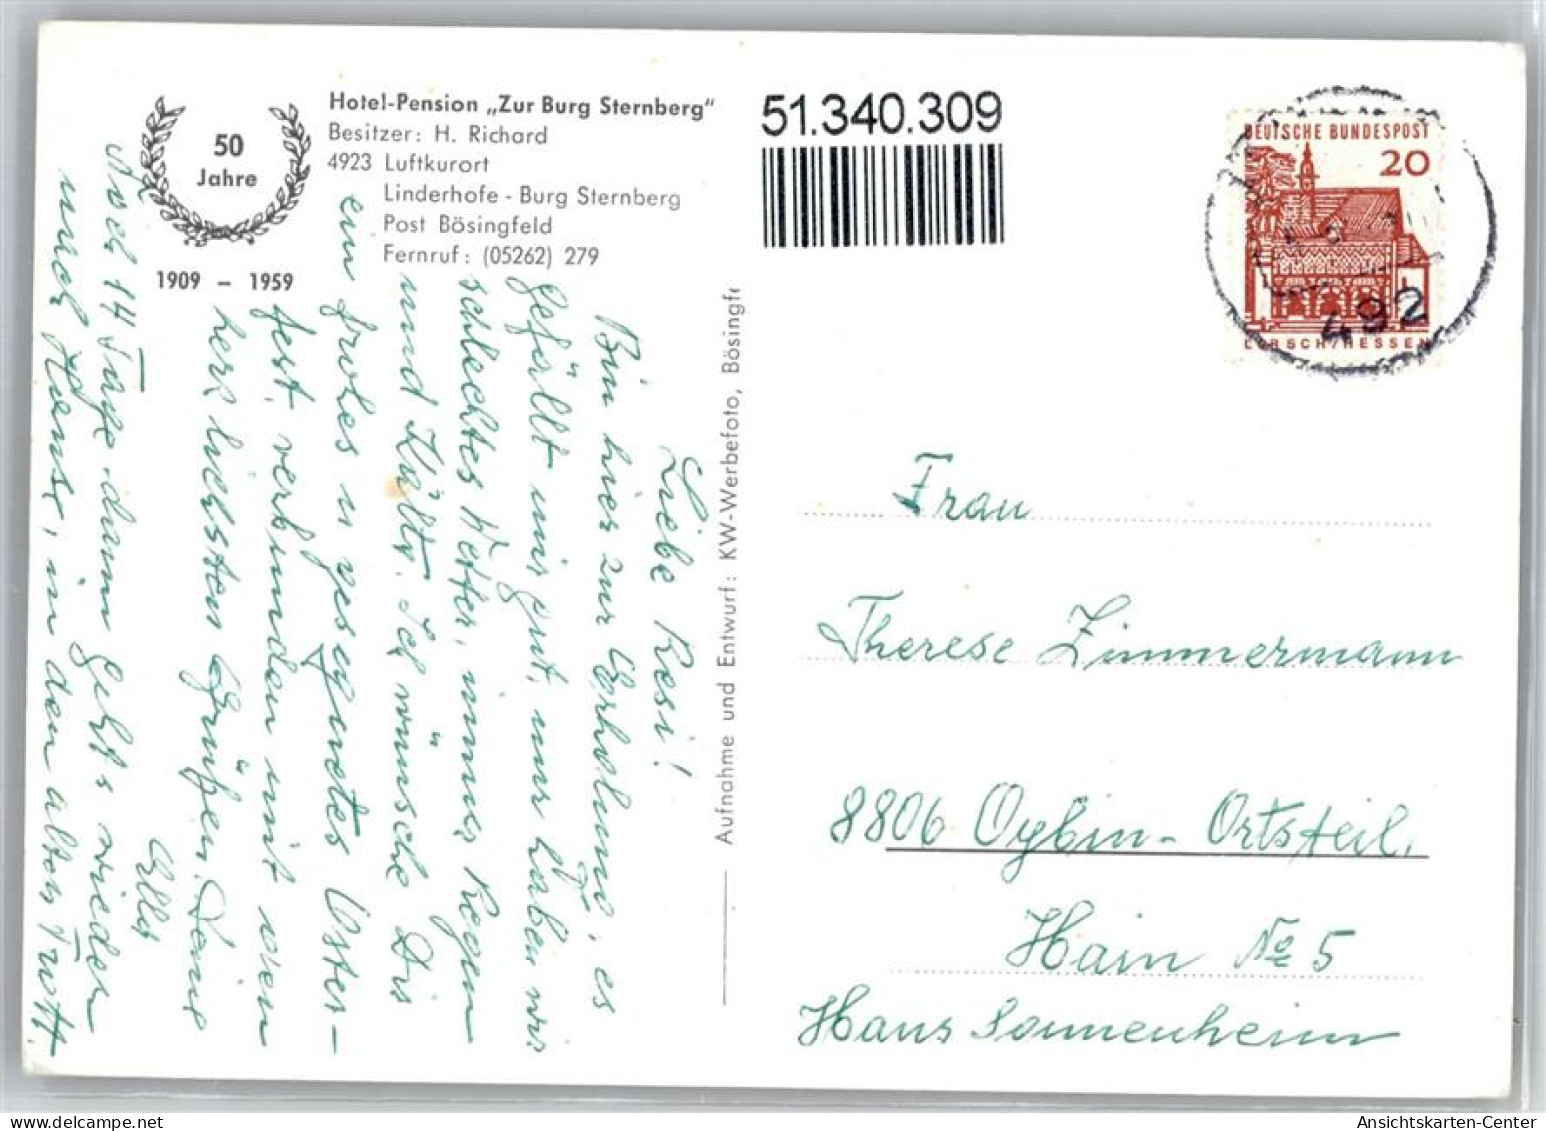 50
Jahre
1909 – 1959
Hotel-Pension „Zur Burg Sternberg"
Besitzer: H. Richard
4923 Luftkurort
Linderhofe - Burg Sternberg
Post Bösingfeld
Fernruf: (05262) 279
51.340.309
DEUTSCHE BUNDESPOST
20
LORSCH/HESSEN
492
Liebe Resi!
Bin hier zur Erholung, es
gefällt mir gut, nur haben wir
schlechtes Wetter, immer Regen
und Kälte. Ich wünsche Dir
ein frohes u gesegnetes Oster-
fest, verbunden mit den
herzlichsten Grüßen. Deine
Elly
Noch 14 Tage dann geht's wieder
nach Hause, in den alten Trott.
Aufnahme und Entwurf: KW-Werbefoto, Bösingfe
Frau
Therese Zimmermann
8806 Oybin - Ortsteil.
Hain No 5
Haus Sonnenheim
Ansichtskarten-Center